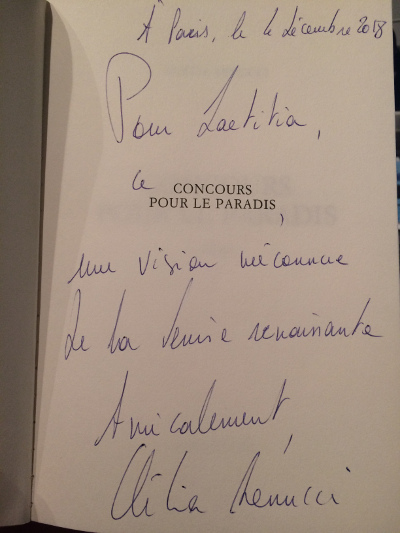 À Paris, le 6 décembre 2018
Pour Laetitia,
ce
CONCOURS
POUR LE PARADIS,
une vision méconnue
de la Venise renaissante
Amicalement,
Clélia Renucci